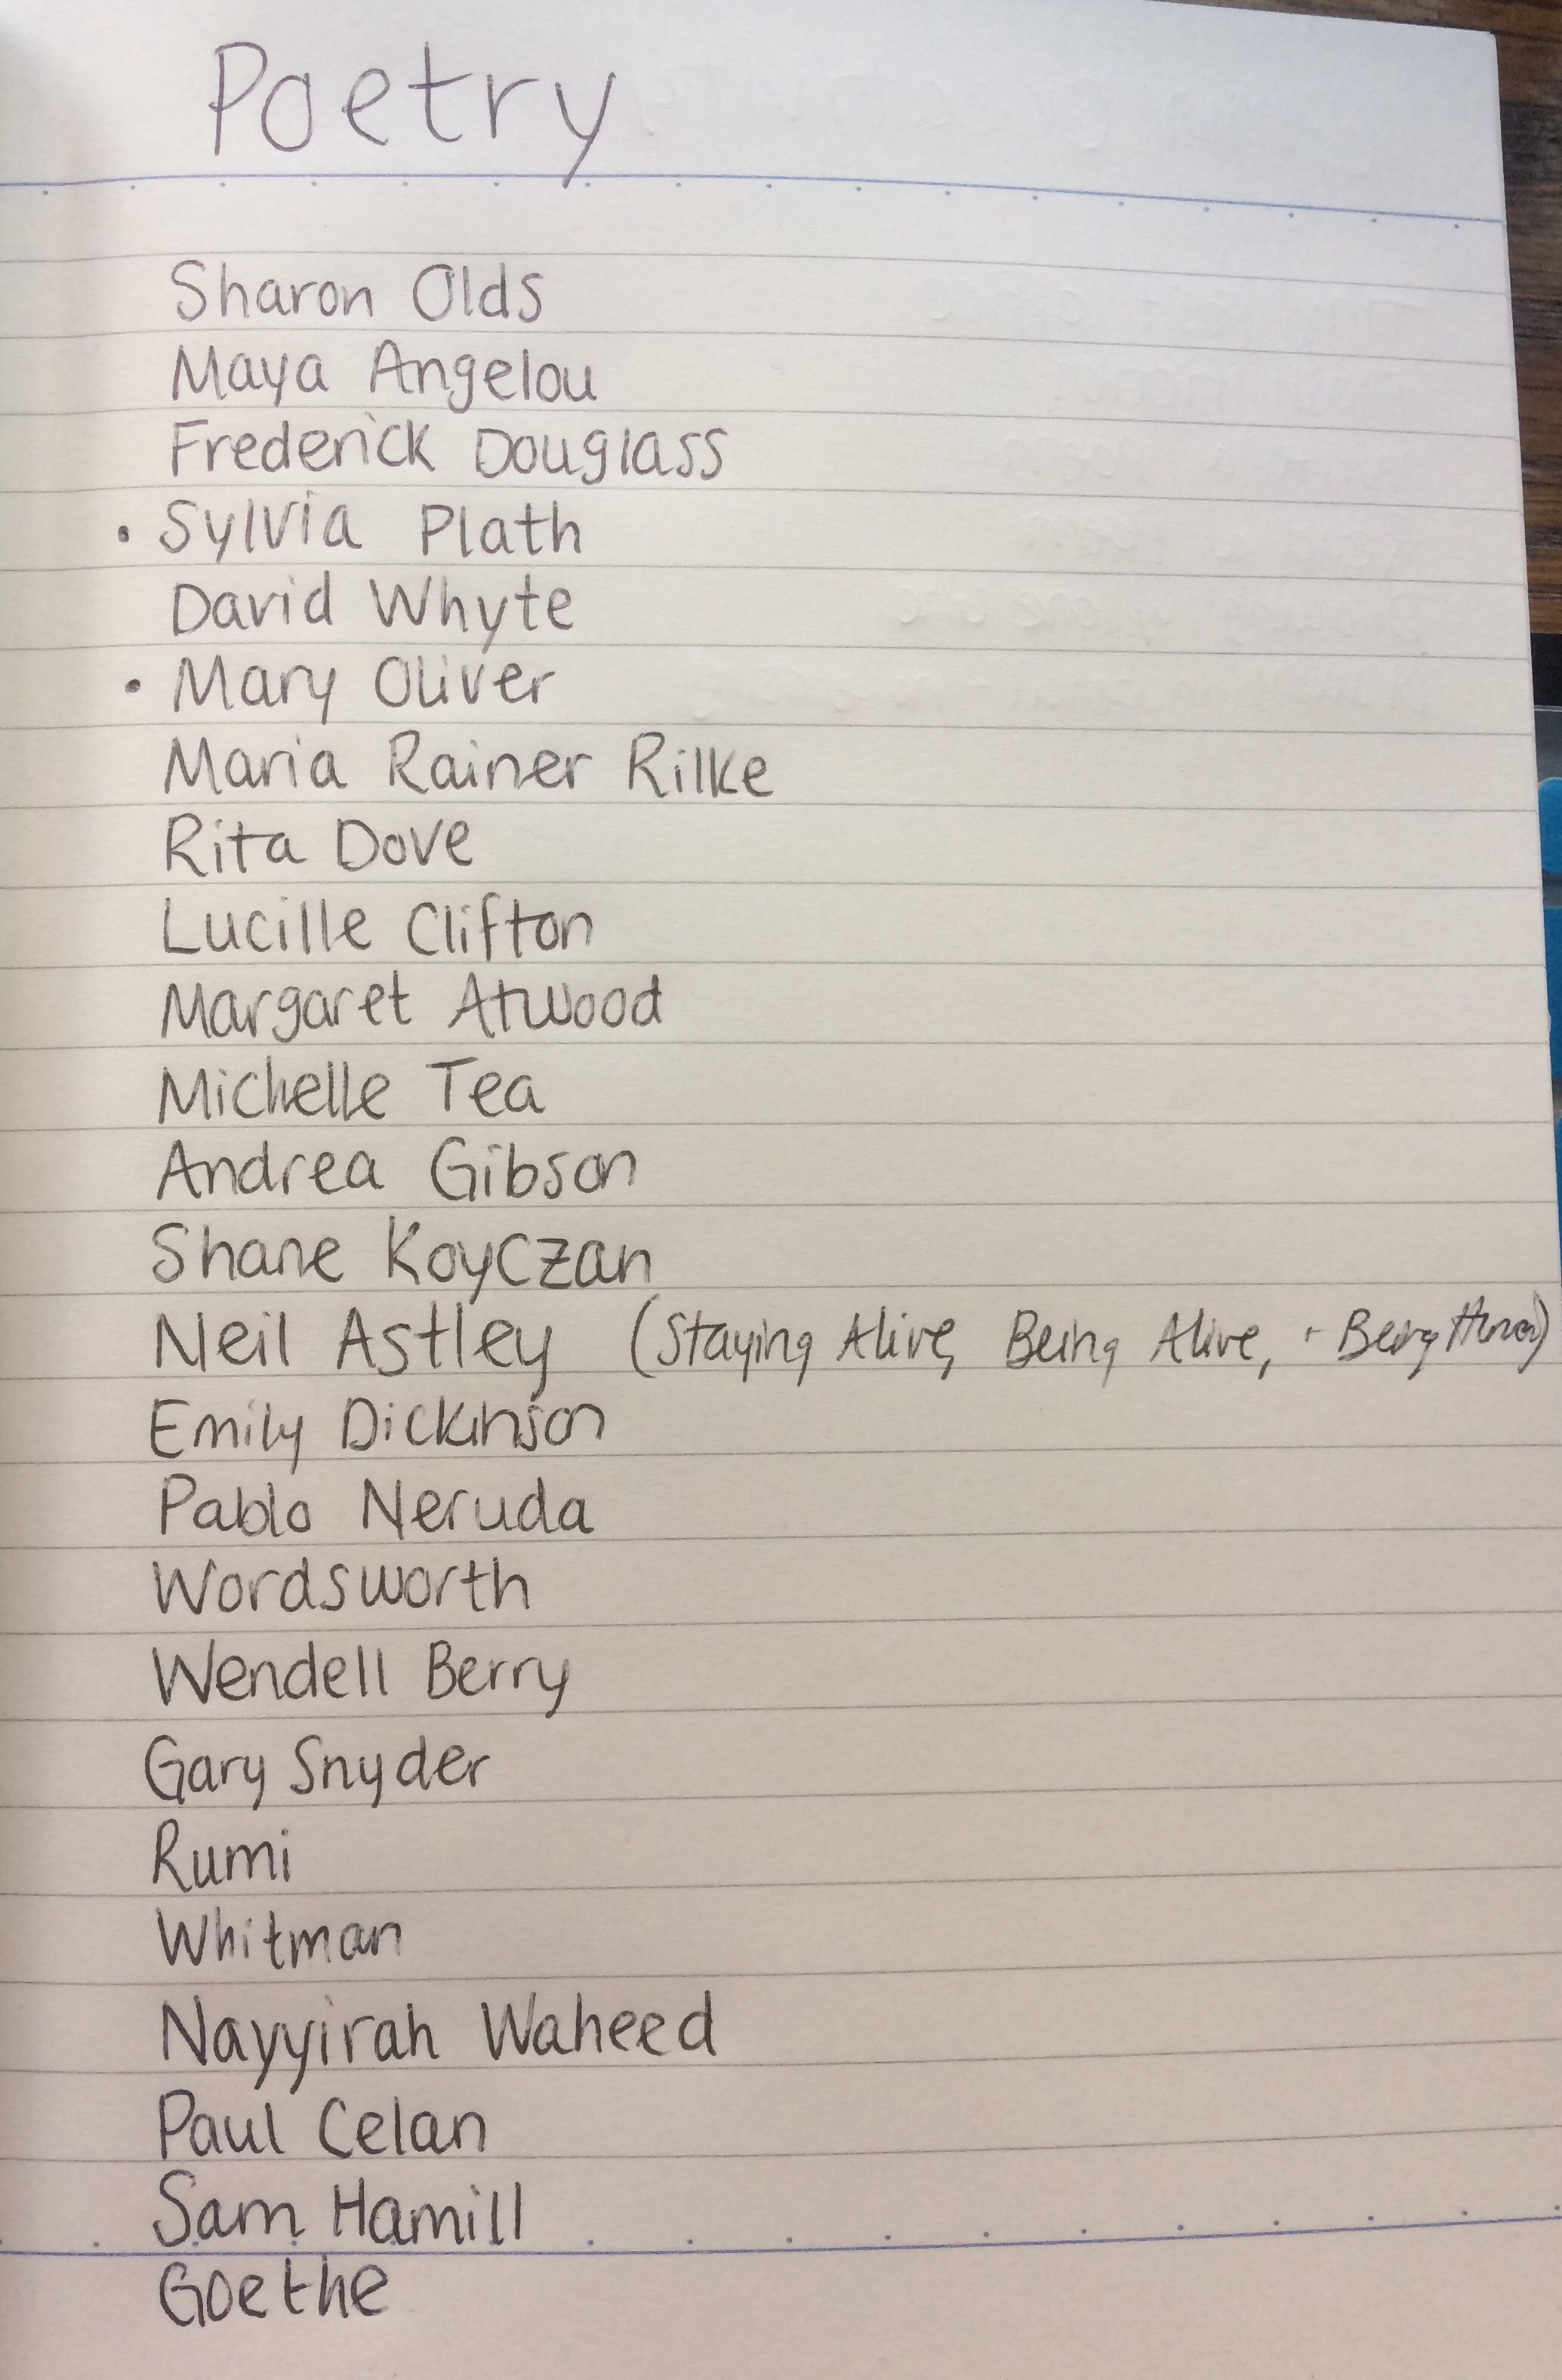 Poetry
Sharon Olds
Maya Angelou
Frederick Douglass
• Sylvia Plath
David Whyte
• Mary Oliver
Maria Rainer Rilke
Rita Dove
Lucille Clifton
Margaret Atwood
Michelle Tea
Andrea Gibson
Shane Koyczan
Neil Astley (Staying Alive, Being Alive, + Being Human)
Emily Dickinson
Pablo Neruda
Wordsworth
Wendell Berry
Gary Snyder
Rumi
Whitman
Nayyirah Waheed
Paul Celan
Sam Hamill
Goethe